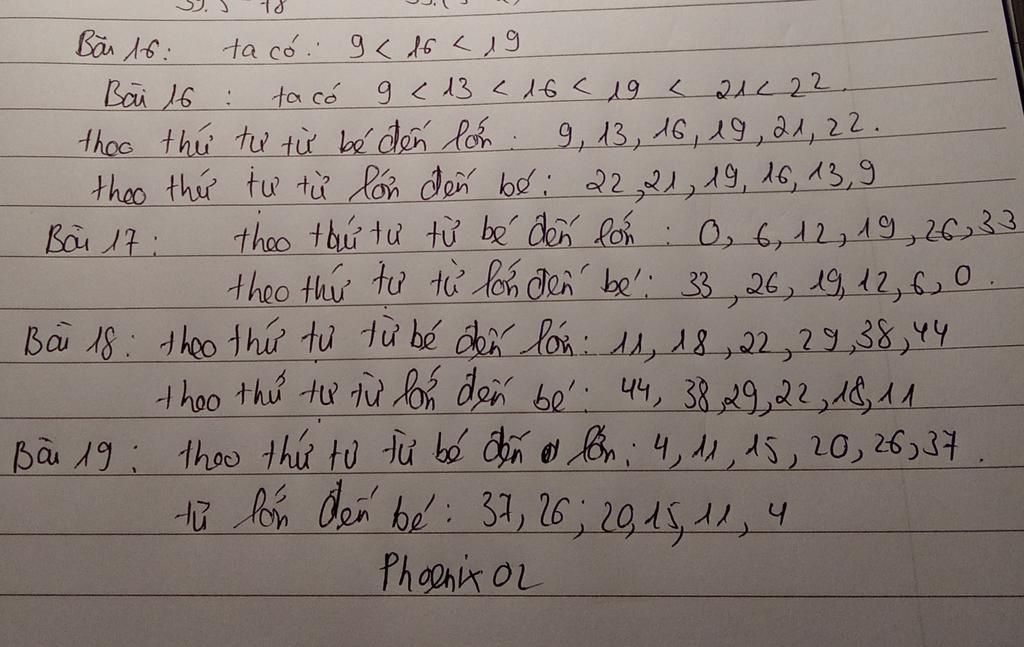 Bài 16: ta có: 9 < 16 < 19
Bài 16 : ta có 9 < 13 < 16 < 19 < 21 < 22.
theo thứ tự từ bé đến lớn: 9, 13, 16, 19, 21, 22.
theo thứ tự từ lớn đến bé: 22, 21, 19, 16, 13, 9
Bài 17: theo thứ tự từ bé đến lớn: 0, 6, 12, 19, 26, 33
theo thứ tự từ lớn đến bé: 33, 26, 19, 12, 6, 0.
Bài 18: theo thứ tự từ bé đến lớn: 11, 18, 22, 29, 38, 44
theo thứ tự từ lớn đến bé: 44, 38, 29, 22, 18, 11
Bài 19: theo thứ tự từ bé đến lớn: 4, 11, 15, 20, 26, 37.
từ lớn đến bé: 37, 26; 20, 15, 11, 4
Phoenix OL